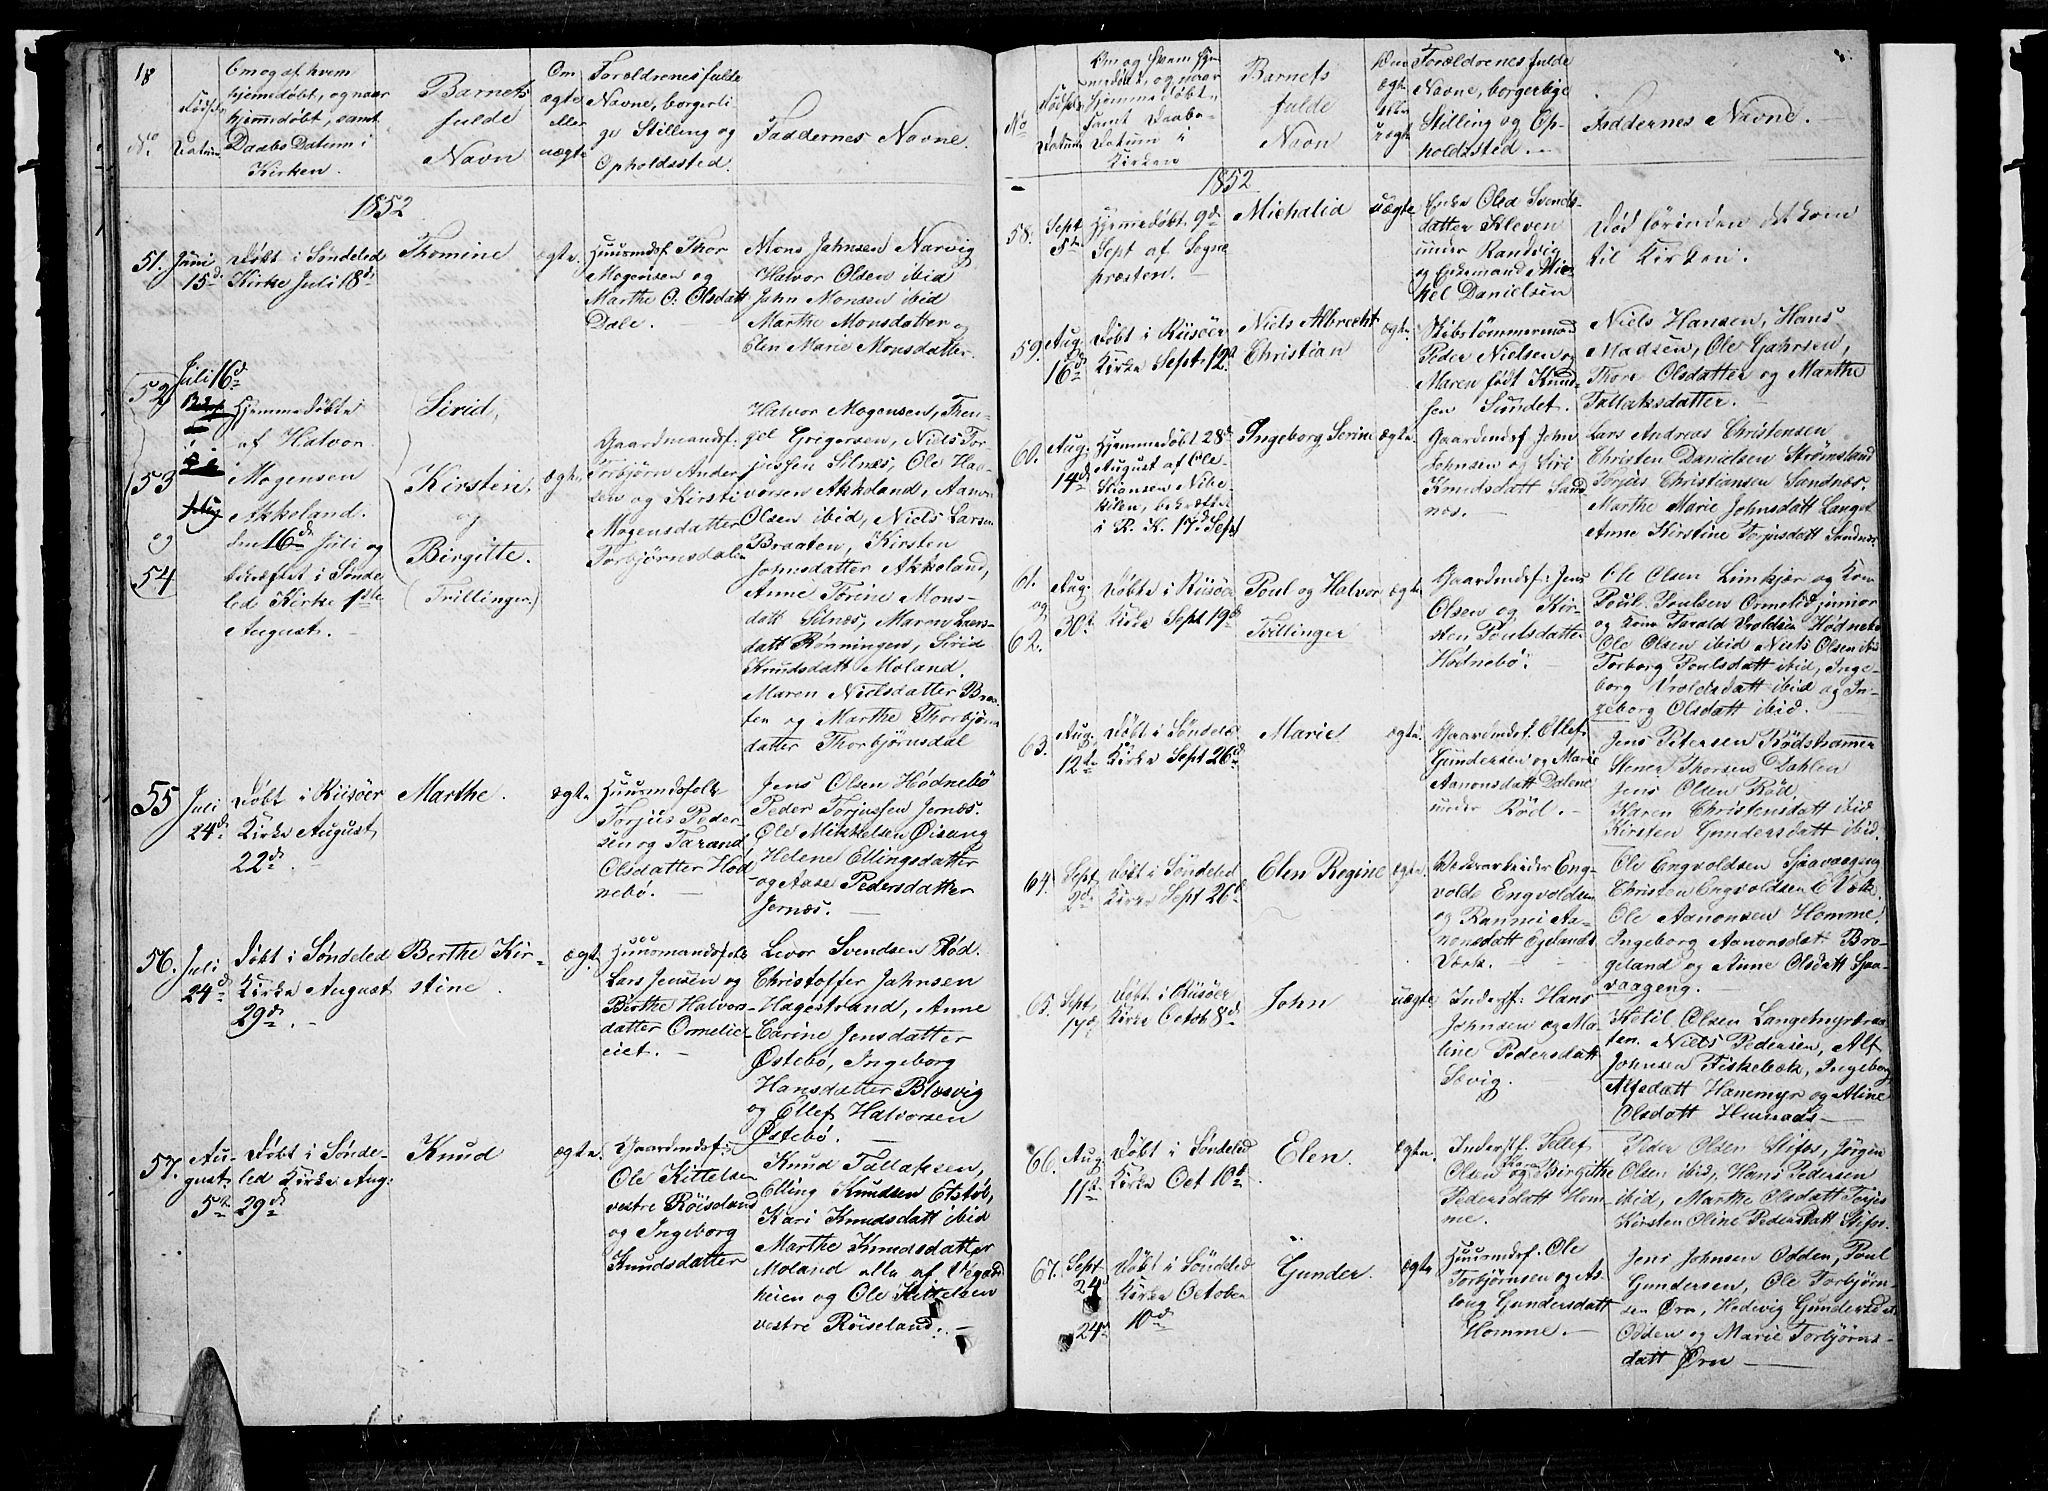 18
No.
Fødsels
Datum
Om og af hvem
hjemmedøbt, og naar
hjemmedøbt, samt
Daabs Datum i
Kirken.
Barnets
fulde
Navn
Om
ægte
eller
uægte
Forældrenes fulde
Navne, borgerli
ge Stilling og
Opholdssted.
Faddernes Navne.
1852
51.
Juni
15d.
Døbt i Søndeled
Kirke Juli 18d
Thomine
ægte.
Huusmdsf. Thor
Mogensen og
Marthe O. Olsdatt
Dale.
Mons Jahnsen Narvig
Halvor Olsen ibid
John Monsen ibid
Marthe Monsdatter og
Elen Marie Monsdatter.
52
53
og
54
Juli 16d
Hjemmedøbte
af Halvor
Mogensen
Akkeland.
den 16d Juli og
bekræftet i Sønde
led Kirke 1ste
August.
Sirid,
Kirsten,
og
Birgitte.
(Trillinger)
ægte
Gaardmandsf:
Torbjørn Ander
sen og Kirsti
Mogensdatter
Torbjørnsdalen
Halvor Mogensen, Then-
gel Grigersen, Niels Tor
jussen Silnæs, Ole Hal-
vorsen Akkeland, Aanon
Olsen ibid, Niels Larsen
Braaten, Kirsten
Johnsdatter Akkeland,
Anne Torine Mons-
datt Silnæs, Maren Lars-
datt Rønningen, Sirid
Knudsdatt Moland.
Maren Nielsdatter Braa-
ten og Marthe Thorbjørn
datter Thorbjørnsdal
55
Juli
24d.
Døbt i Riisøer
Kirke August
22d.
Marthe.
ægte.
Huusmdsfolk
Torjus Peder
sen og Tarand
Olsdatter Hød
nebø.
Jens Olsen Hødnebö
Peder Torjussen Jernæs.
Ole Mikkelsen Øisang
Helene Ellingsdatter
og Aase Pedersdatter
Jernæs.
56.
Juli
24d
Døbt i Søndeled
Kirke August
29d.
Berthe Kir-
stine.
ægte
Huusmandsfolk
Lars Jensen og
Birthe Halvors
datter Ormelie-
eiet.
Levor Svendsen Rød.
Christoffer Jahnsen
Hagestrand, Anne
Carine Jensdatter
Østebø, Ingeborg
Hansdatter Blæsvig
og Ellef Halvorsen
Østebø.
57.
Au-
gust
5te
Døbt i Sønde-
led Kirke Aug:
29d
Knud
ægte.
Gaardmdsf:
Ole Kittelsen
vestre Röiseland
og Ingeborg
Knudsdatter
Knud Tallaksen,
Elling Knudsen Etstøl,
Kari Knudsdatt ibid
Marthe Knudsdatter
Moland alle af Vegaards
heien og Ole Kittelsen
vestre Röiseland.
No
Fødsels
Datum
Om og hvem hjem
medøbt, og naar
hjemmedøbt
samt Daabs-
Datum i
Kirken
Barnets
fulde
Navn
Om
ægte
eller
uægte
Forældrenes fulde
Navne, borgerlige
Stilling og Op-
holdssted.
Faddernes Navne.
1852
58.
Sept
5te
Hjemmedøbt 9d
Sept af Sogne
præsten.
Michalid
uægte
Enke Olea Svends-
datter Kleven
under Randvig
og Enkemand Mic
kel Danielsen
Død förinden det kom
til Kirken.
59.
Aug
16d
Døbt i Riisöer
Kirke Sept 12d
Niels Albrecht
Christian
ægte.
Skibstømmermand
Peder Nielsen og
Maren født Knud-
sen Sundet.
Niels Hansen, Hans
Madsen, Ole Gjahrsen,
Thore Olsdatter og Marthe
Tallaksdatter.
60.
Aug.
14d
Hjemmedøbt 28d
August af Ole
Stiansen Nibe
kilen, bekræftet
i R. K. 17d Sept
Ingeborg Serine
ægte.
Gaardmdsf John
Johnsen og Siri
Knudsdatt Sand
næs.
Lars Andreas Christensen
Christen Danielsen Strømsland
Torjus Christiansen Sandnæs.
Marthe Marie Johnsdatt Lunget
Anne Kirstine Torjusdatt Sandnæs
61.
og
62.
Aug:
30te
Døbte i Riisöer
Kirke Sept 19d
Poul og Halvor
Tvillinger
ægte.
Gaardmdsf: Jens
Olsen og Kir-
sten Poulsdatter
Hødnebö.
Ole Olsen Limkjær og Kone
Poul Poulsen Ormelid junior
og kone Tarald Vroldsen Hødnebö
Ole Olsen ibid Niels Olsen ibid
Torborg Poulsdatt ibid, Inge-
borg Vroldsdatt ibid og In-
geborg Olsdatt ibid.
63.
Aug.
12te
Døbt i Søndeled
Kirke Sept 26d
Marie.
ægte.
Gaardmdsf. Ellef
Gundersen og Marie
Aanonsdatt Dalene
under Röd.
Jens Petersen Rödshammer
Stener Thorsen Dahlen
Jens Olsen Röd.
Karen Christensdatt ibid
Kirsten Gundersdatt ibid.
64.
Sept
2d
Døbt i Søndeled
Kirke Sept 26d
Elen Regine
ægte.
Værksarbeider Eng-
volde Engvoldsen
og Rannei Aa-
nonsdatt Egelands
Værk.
Ole Engvoldsen Sjaavaageng
Christen Engvoldsen E Værk
Ole Aanonsen Homme,
Ingeborg Aanonsdat Bro-
geland og Anne Olsdatt Sjaa-
vaageng.
65.
Sept
17d
Døbt i Riisöer
Kirke Octob 8d
John
uægte
Inderstf: Hans
Johnsen og Ma-
line Pedersdatt
Sævig.
Ketil Olsen Langemyrbraa-
ten. Niels Pedersen, Alf
Johnsen Fiskebæk, Ingeborg
Alfsdatt Hanemyr og Aline
Olsdatt
66.
Aug
11te
Døbt i Søndeled
Kirke Oct 10d
Elen.
ægte.
Inderstf. Tellef
Olsen og Birgithe
Pedersdatt Hom-
me.
Peder Olsen Stifos, Jörgen
Olsen ibid, Hans Pedersen
ibid, Marthe Olsdatt
Kirsten Oline Pedersdatt Stifos.
67.
Sept
24
24d
Døbt i Søndeled
Kirke October
10d
Gunder.
ægte
Huusmdsf. Ole
Torbjørnsen og As-
laug Gundersdatt
Homme.
Jens Johnsen Odden, Poul
Gundersen, Ole Torbjørn-
sen Örn, Hedevig Gundersdatt
Odden og Marie Torbjørns-
datt Örn